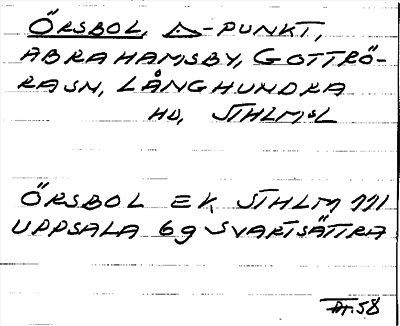 ÖRSBOL, △-PUNKT,
ABRAHAMSBY, GOTTRÖ-
RA SN, LÅNGHUNDRA
HD, STHLMSL
ÖRSBOL EK, STHLM 111
UPPSALA 6g SVARTSÄTTRA
58